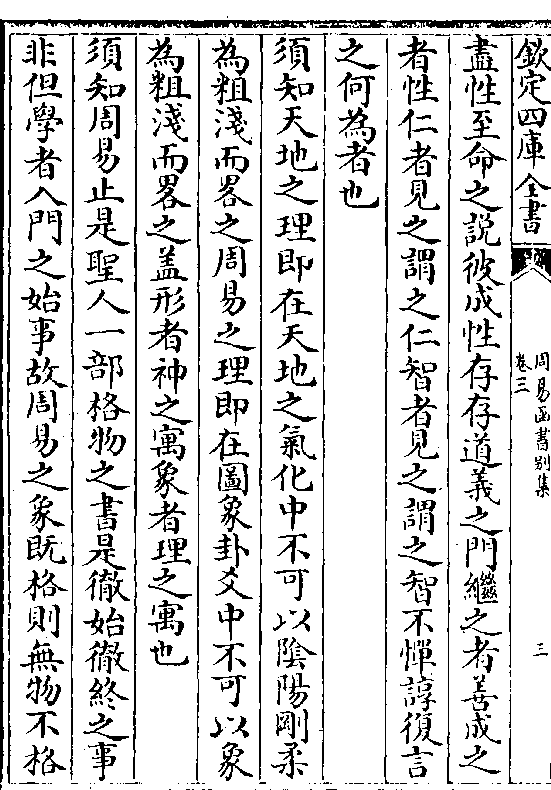 欽定四庫全書
周易函書別集
卷三
三
盡性至命之說彼成性存存道義之門繼之者善成之
者性仁者見之謂之仁智者見之謂之智不憚諄復言
之何為者也
須知天地之理即在天地之氣化中不可以陰陽剛柔
為粗淺而畧之周易之理即在圖象卦爻中不可以象
為粗淺而畧之盖形者神之寓象者理之寓也
須知周易止是聖人一部格物之書是徹始徹終之事
非但學者入門之始事故周易之象既格則無物不格